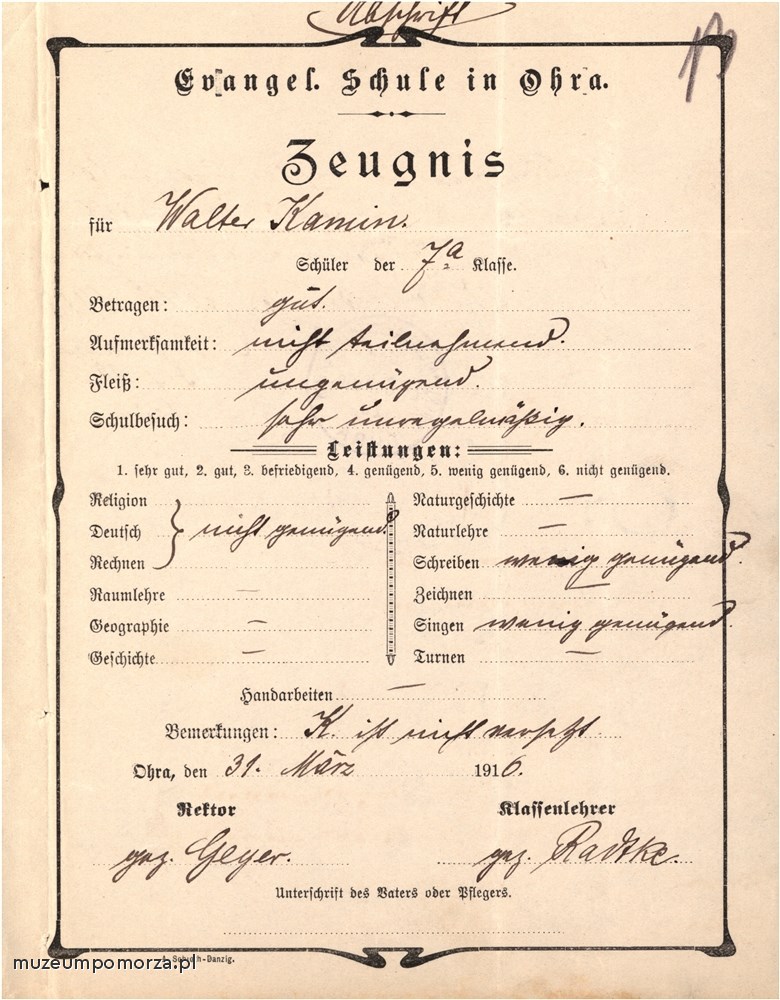 Abschrift
Evangel. Schule in Ohra.
Zeugnis
für Walter Kamin.
Schüler der 7a Klasse.
Betragen: gut.
Aufmerksamkeit: nicht teilnehmend.
Fleiß: ungenügend.
Schulbesuch: sehr unregelmäßig.
Leistungen:
1. sehr gut, 2. gut, 3. befriedigend, 4. genügend, 5. wenig genügend, 6. nicht genügend.
Religion
Deutsch } nicht genügend.
Rechnen
Raumlehre —
Geographie —
Geschichte —
Naturgeschichte —
Naturlehre —
Schreiben wenig genügend.
Zeichnen —
Singen wenig genügend.
Turnen —
Handarbeiten —
Bemerkungen: K. ist nicht versetzt.
Ohra, den 31. März 1916.
Rektor Klassenlehrer
gez. Geyer. gez. Radtke.
Unterschrift des Vaters oder Pflegers.
-Danzig.
muzeumpomorza.pl